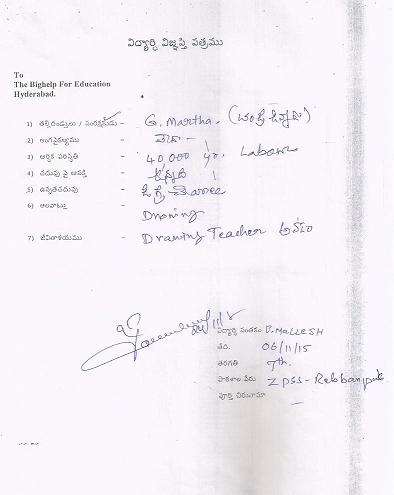 విద్యార్థి విజ్ఞప్తి పత్రము
To
The Bighelp For Education
Hyderabad.
1) తల్లిదండ్రులు / సంరక్షకుడు - G. Martha.
2) అంగవైకల్యము -
3) ఆర్థిక పరిస్థితి - 40,000
4) చదువు పై ఆసక్తి - ఉన్నది
5) ఉన్నతచదువు - డిగ్రీ
6) అలవాట్లు - Drawing
7) జీవితాశయము - Drawing Teacher అవడం
విద్యార్థి సంతకం D. MALLESH
తేది. 06/11/15
తరగతి 7th.
పాఠశాల పేరు ZPSS-
పూర్తి చిరునామా —